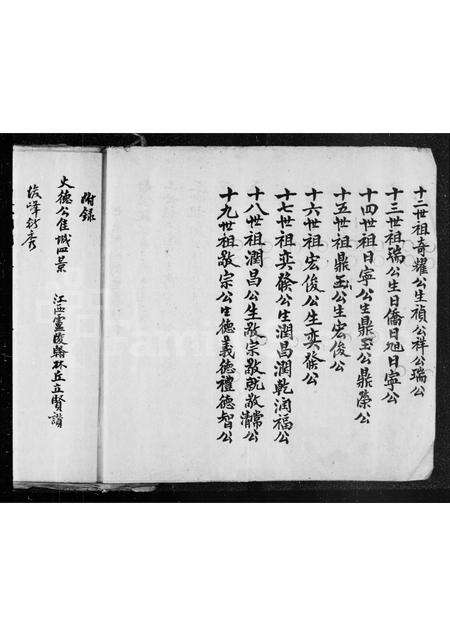 十二世祖奇耀公生禎公祥公瑞公
十三世祖瑞公生日僑日旭日寧公
十四世祖日寧公生鼎玉公鼎榮公
十五世祖鼎玉公生宏俊公
十六世祖宏俊公生奕發公
十七世祖奕發公生潤昌潤乾润福公
十八世祖潤昌公生敬宗敬就敬常公
十九世祖敬宗公生德義德禮德智公
附錄
大德公佳城四景
江西靈陵翰林丘立賢讚
後峰